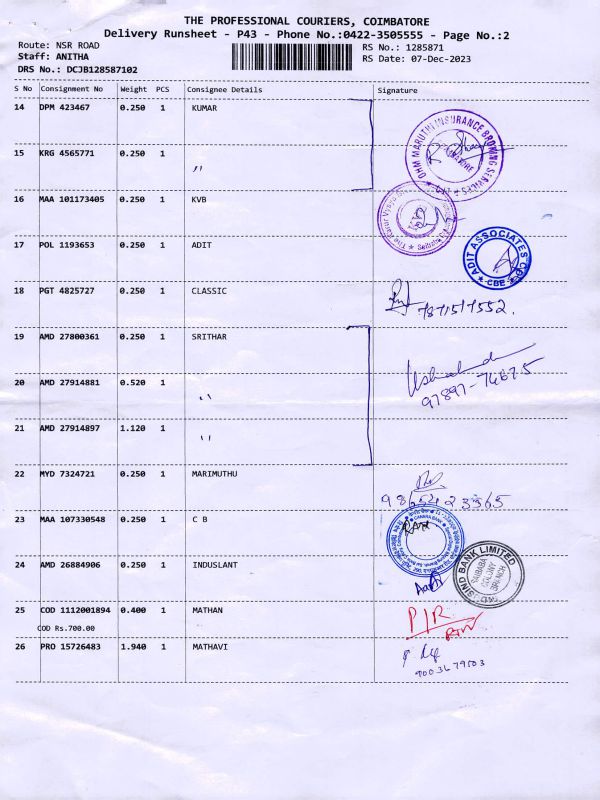 THE PROFESSIONAL COURIERS, COIMBATORE
Delivery Runsheet - P43 - Phone No.:0422-3505555 - Page No.:2
Route: NSR ROAD RS No.: 1285871
Staff: ANITHA RS Date: 07-Dec-2023
DRS No.: DCJB128587102
S No Consignment No Weight PCS Consignee Details Signature
14 DPM 423467 0.250 1 KUMAR
OHM MARUTHI INSURANCE BROKING SERVICES
15 KRG 4565771 0.250 1 ,,
16 MAA 101173405 0.250 1 KVB
17 POL 1193653 0.250 1 ADIT
ADIT ASSOCIATES
CBE
18 PGT 4825727 0.250 1 CLASSIC
7871517552.
19 AMD 27800361 0.250 1 SRITHAR
20 AMD 27914881 0.520 1 ,,
97897-74675
21 AMD 27914897 1.120 1 ,,
22 MYD 7324721 0.250 1 MARIMUTHU
23 MAA 107330548 0.250 1 C B
CANARA BANK
24 AMD 26884906 0.250 1 INDUSLANT
INDUSIND BANK LIMITED
SAIBABA
COLONY
BRANCH
25 COD 1112001894 0.400 1 MATHAN
COD Rs.700.00
26 PRO 15726483 1.940 1 MATHAVI